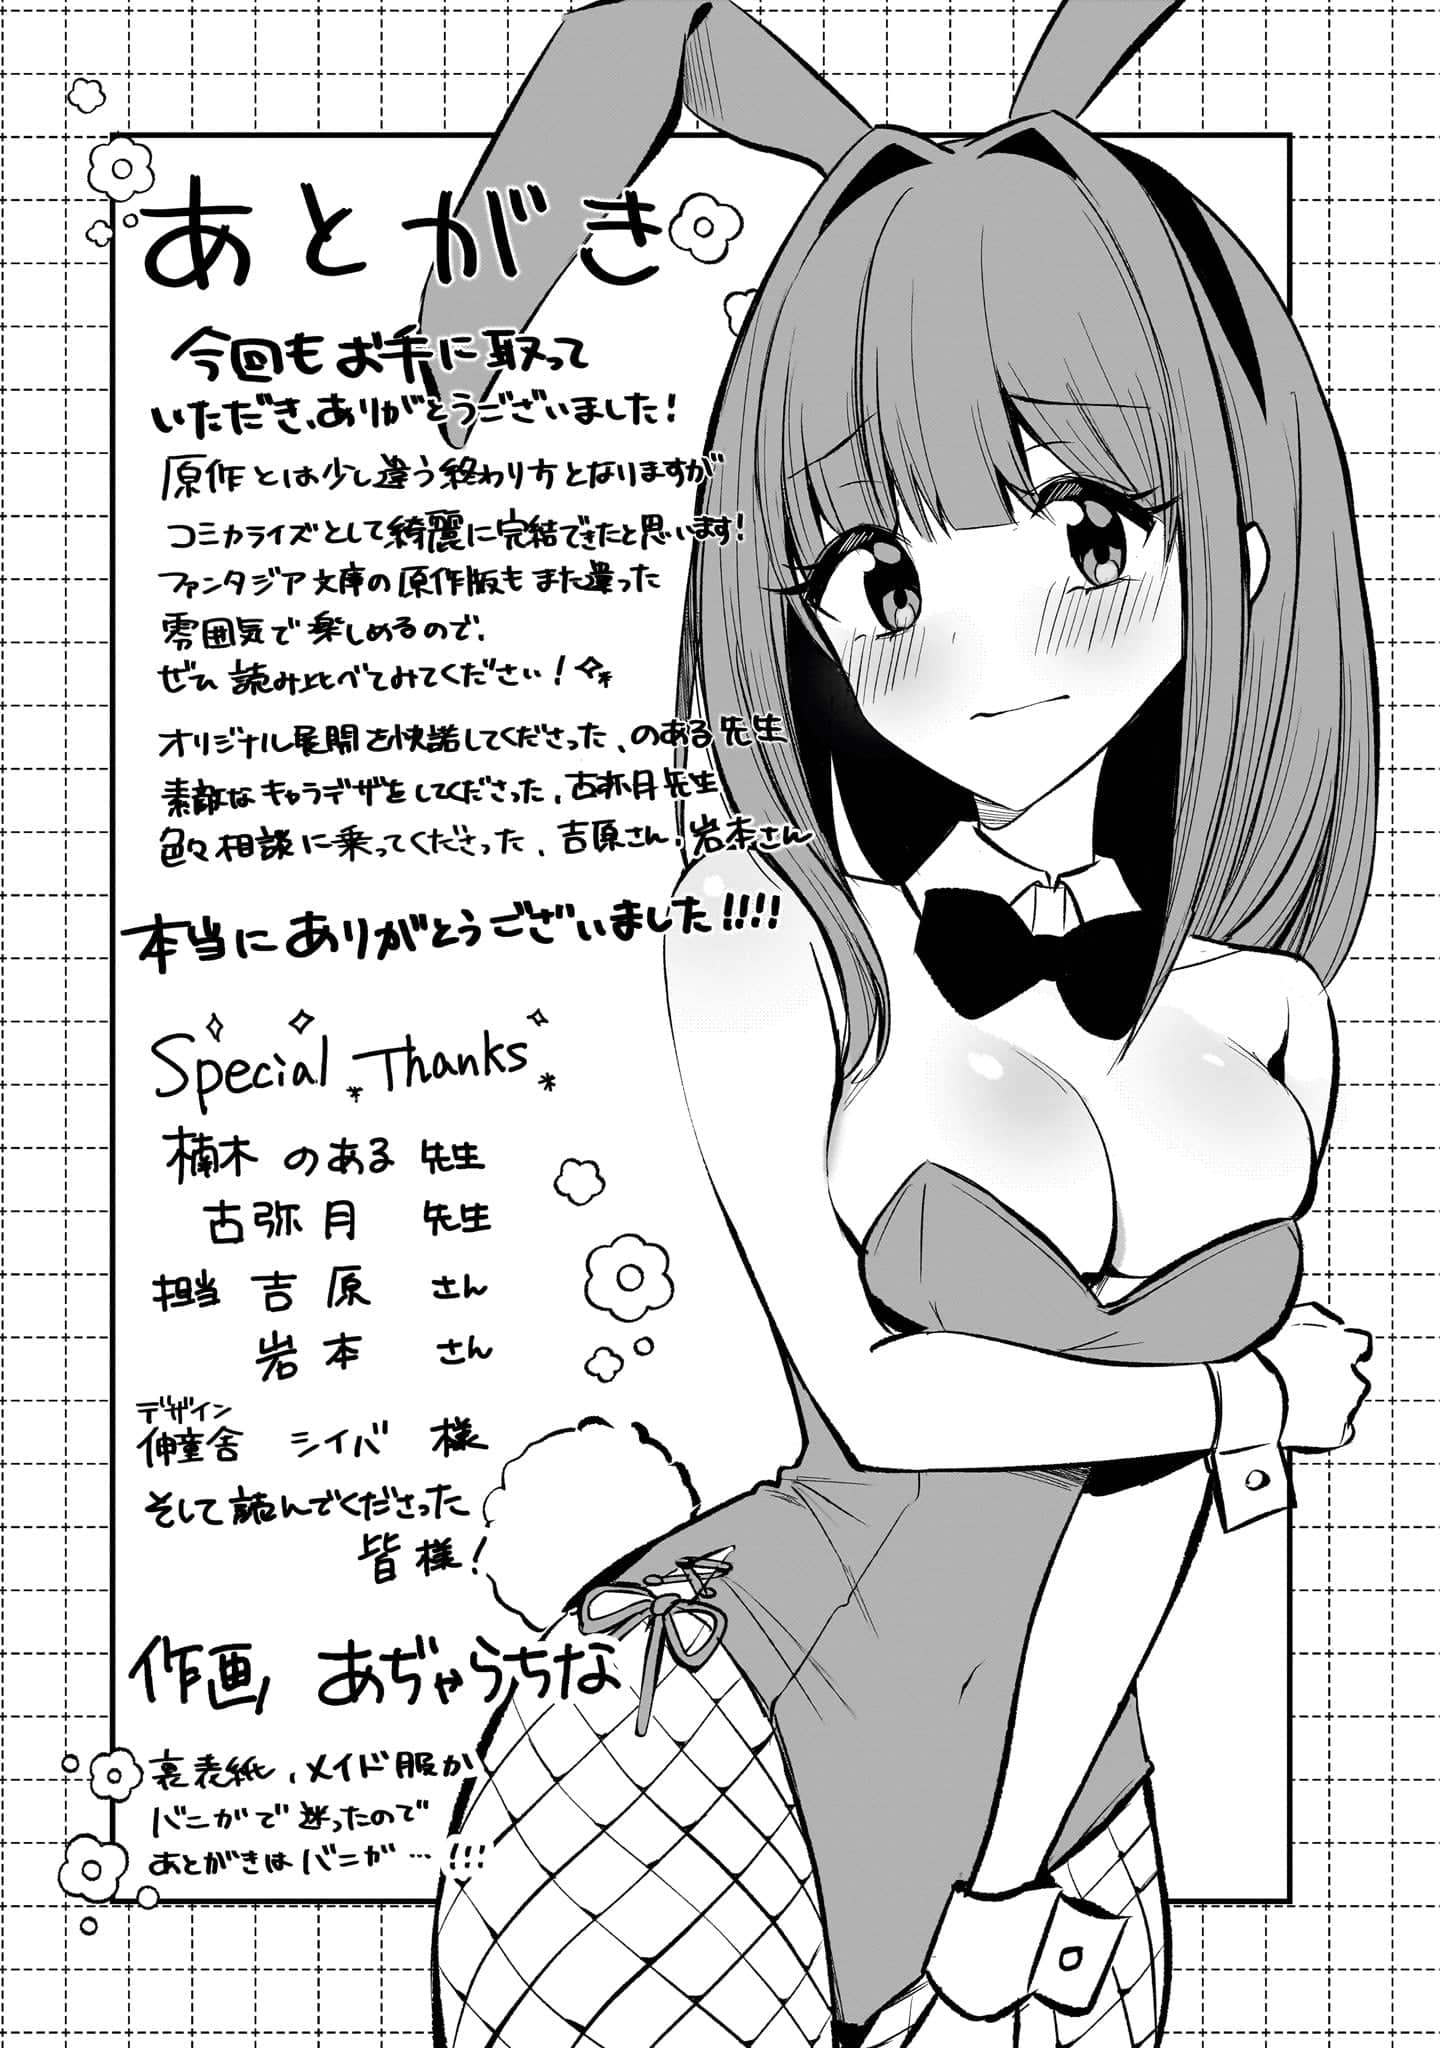 あとがき
今回もお手に取って
いただき、ありがとうございました!
原作とは少し違う終わり方となりますが
コミカライズとして綺麗に完結できたと思います!
ファンタジア文庫の原作版もまた違った
雰囲気で楽しめるので、
ぜひ読み比べてみてください!
オリジナル展開を快諾してくださった、のある先生
素敵なキャラデザをしてくださった、古弥月先生
色々相談に乗ってくださった、吉原さん、岩本さん
本当にありがとうございました!!!!
Special Thanks
楠木 のある 先生
古弥月 先生
担当 吉原 さん
岩本 さん
デザイン
伸童舎 シイバ 様
そして読んでくださった
皆様!
作画 あぢゃらちな
裏表紙、メイド服か
バニガで迷ったので
あとがきはバニガ…!!!